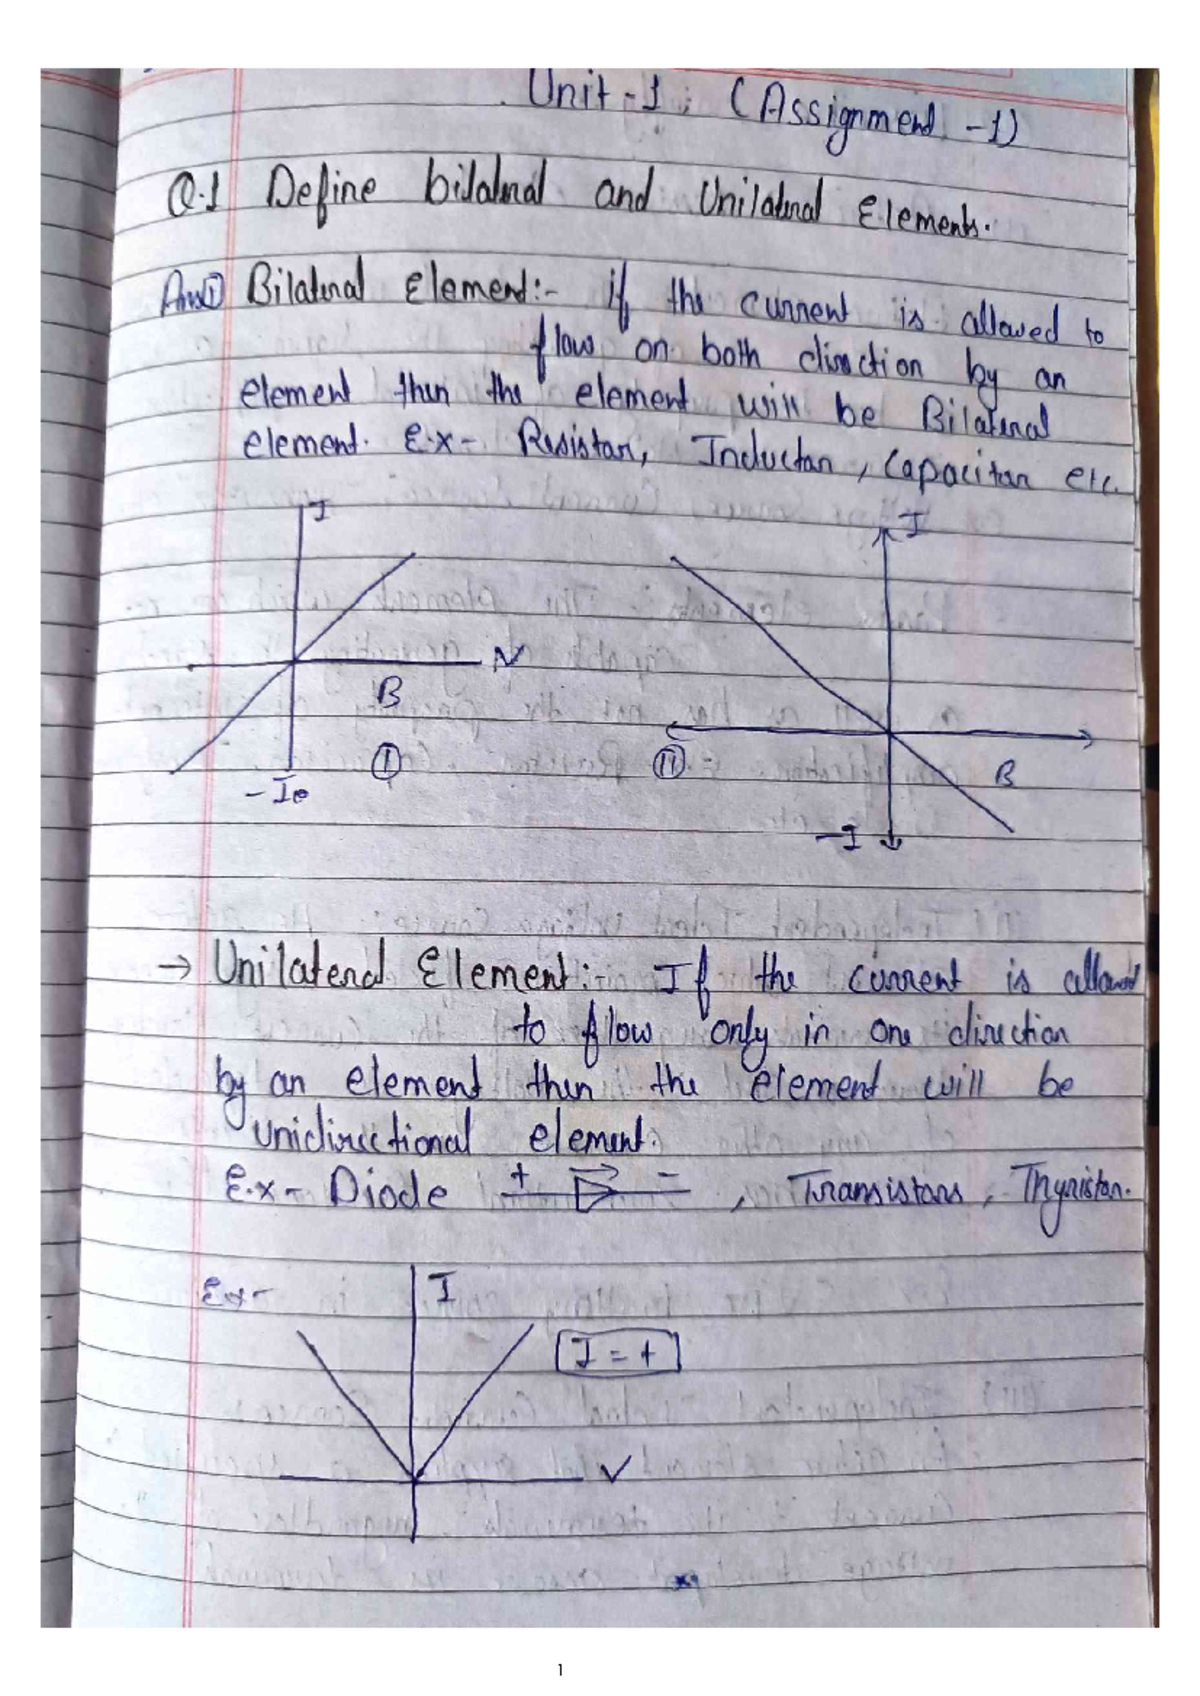 Unit-1; (Assignment -1)
Q.1 Define bilateral and Unilateral Elements.
Ans① Bilateral Element:- if the current is allowed to
flow on both direction by an
element then the element will be Bilateral
element. E.x- Resistor, Inductor, Capacitor etc.
I
I
V
B
①
-I
⑪
B
-I
→ Unilateral Element:- If the current is allowed
to flow only in one direction
by an element then the element will be
unidirectional element.
E.x- Diode + - , Transistors, Thyristor.
Ex- I
I = +
V
1